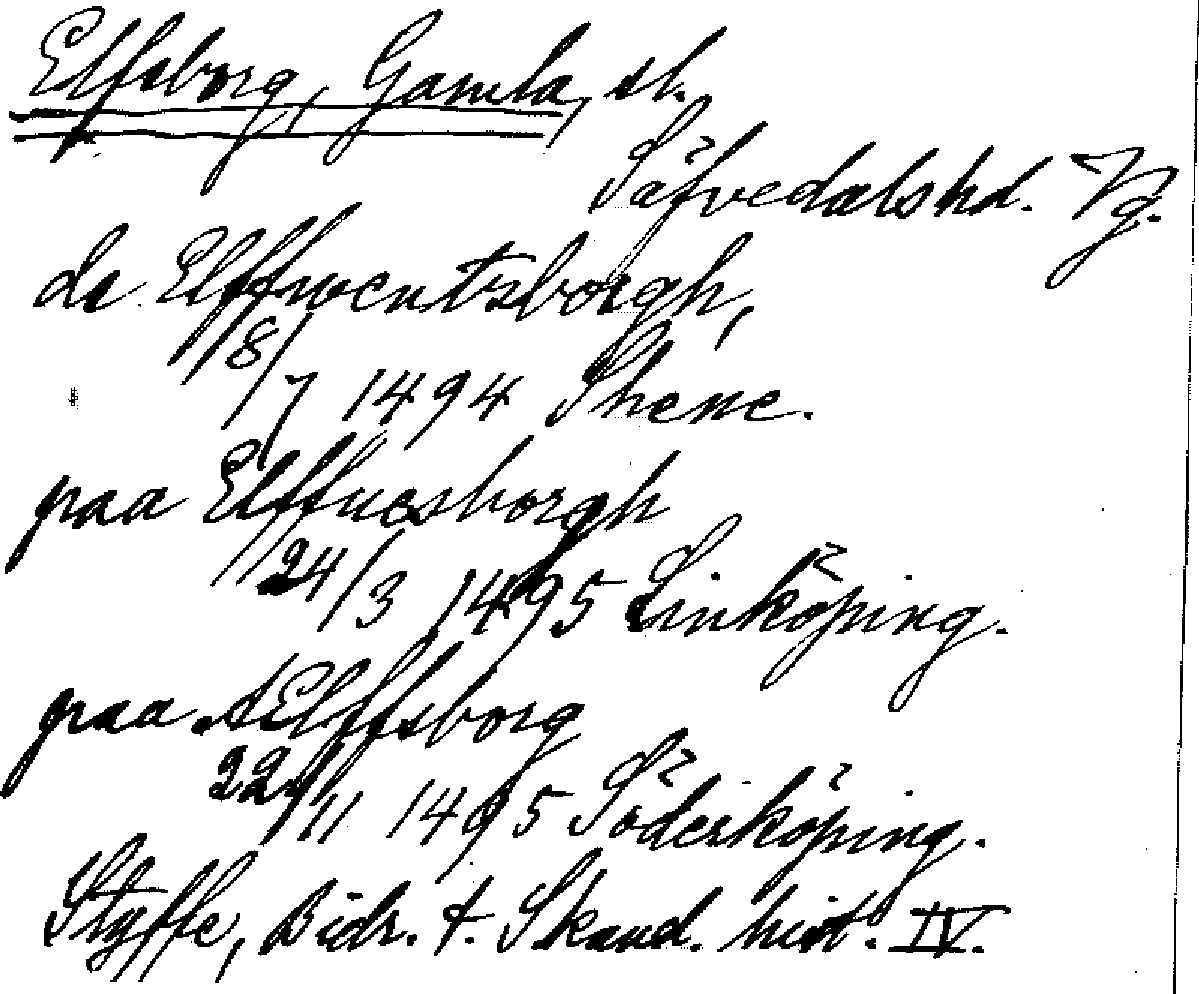 Elfsborg, Gamla, sl.
Säfvedalshd. Vg.
de Elffwentsborgh,
18/7 1494 Skene.
paa Elffuesborgh
24/3 1495 Linköping.
paa AElffsborg
22/11 1495 Söderköping.
Styffe, Bidr. t. Skand. hist. IV.